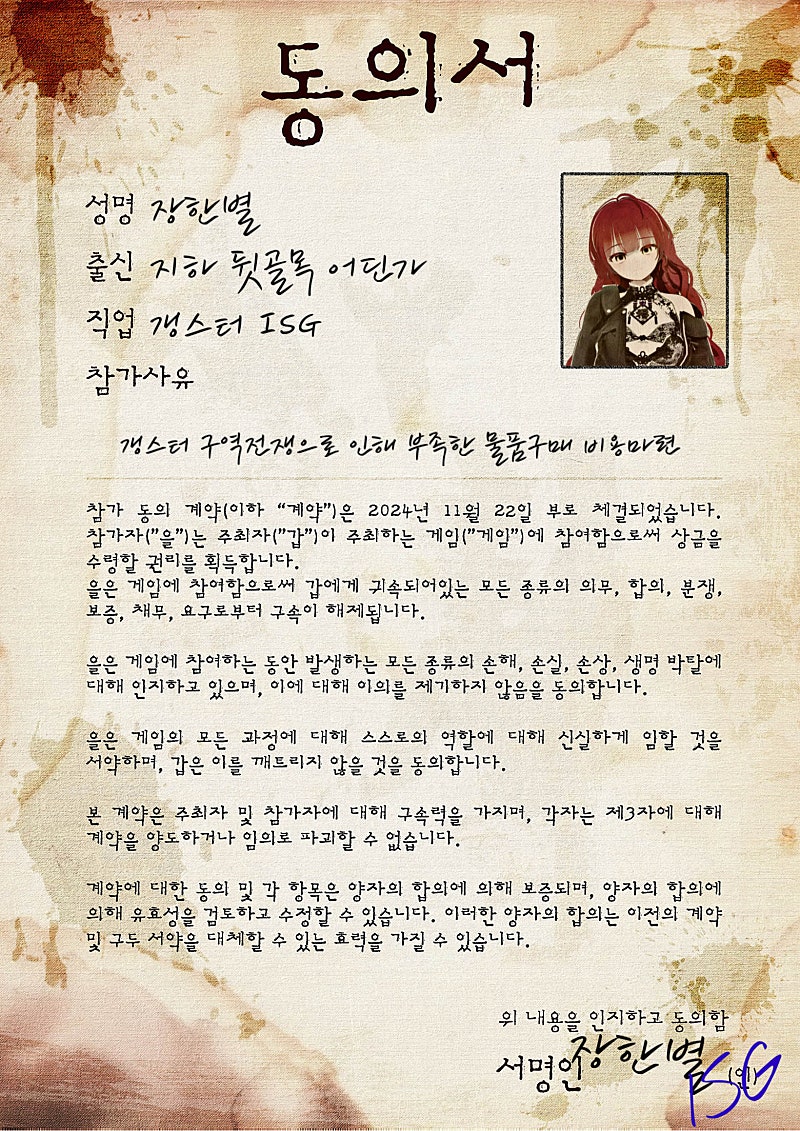 동의서
성명 장한별
출신 지하 뒷골목 어딘가
직업 갱스터 ISG
참가사유
갱스터 구역전쟁으로 인해 부족한 물품구매 비용마련
참가 동의 계약(이하 “계약”)은 2024년 11월 22일 부로 체결되었습니다.
참가자(”을”)는 주최자(”갑”)이 주최하는 게임(”게임”)에 참여함으로써 상금을
수령할 권리를 획득합니다.
을은 게임에 참여함으로써 갑에게 귀속되어있는 모든 종류의 의무, 합의, 분쟁,
보증, 채무, 요구로부터 구속이 해제됩니다.
을은 게임에 참여하는 동안 발생하는 모든 종류의 손해, 손실, 손상, 생명 박탈에
대해 인지하고 있으며, 이에 대해 이의를 제기하지 않음을 동의합니다.
을은 게임의 모든 과정에 대해 스스로의 역할에 대해 신실하게 임할 것을
서약하며, 갑은 이를 깨트리지 않을 것을 동의합니다.
본 계약은 주최자 및 참가자에 대해 구속력을 가지며, 각자는 제3자에 대해
계약을 양도하거나 임의로 파괴할 수 없습니다.
계약에 대한 동의 및 각 항목은 양자의 합의에 의해 보증되며, 양자의 합의에
의해 유효성을 검토하고 수정할 수 있습니다. 이러한 양자의 합의는 이전의 계약
및 구두 서약을 대체할 수 있는 효력을 가질 수 있습니다.
위 내용을 인지하고 동의함
서명인 장한별 (인) ISG